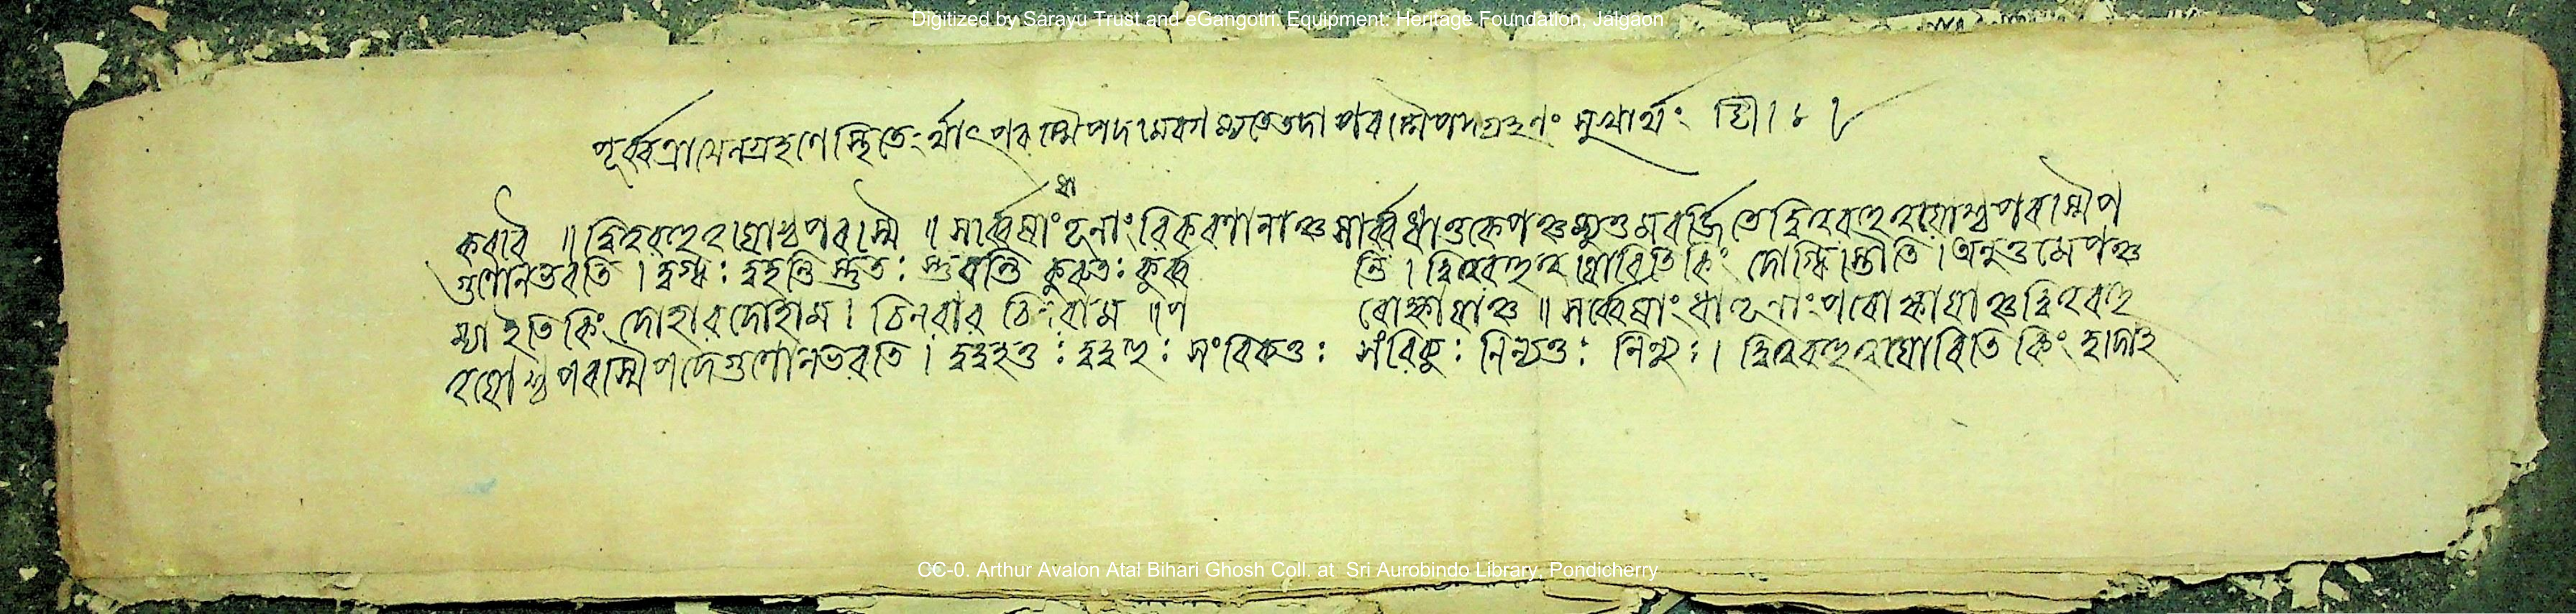 Digitized by Sarayu Trust and eGangotri. Equipment: Heritage Foundation, Jalgaon
পূর্ব্বত্রাপ্যেনগ্রহণে স্থিতেঽর্থাৎ পরস্মৈপদমেবগম্যতে তদা পরস্মৈপদগ্রহণং সুখার্থং
ধা
করবৈ ॥ দ্বিত্ববহুত্বয়োশ্চ পরস্মৈ ॥ সর্ব্বেষাং তূনাং বিকরণানাঞ্চ সার্ব্বধাতুকে পঞ্চম্যুত্তমবর্জ্জিতে দ্বিত্ববহুত্বয়োশ্চ পরস্মৈপ
গুণো ন ভবতি । দুগ্ধঃ দুহন্তি স্তুতঃ স্তুবন্তি কুরুতঃ কুর্ব্ব ন্তি । দ্বিত্ববহুত্বয়োরিতি কিং দোগ্ধি স্তৌতি । অনুত্তমে পঞ্চ
ম্যা ইতি কিং দোহাব দোহাম । চিনবাব চিনবাম ॥ প রোক্ষায়াঞ্চ ॥ সর্ব্বেষাং ধাতূনাং পরোক্ষায়াঞ্চ দ্বিত্ববহু
ত্বয়োশ্চ পরস্মৈপদে গুণো ন ভবতি । দুদুহতুঃ দুদুহুঃ সংবিব্যতুঃ সংবিব্যুঃ নিন্যতুঃ নিন্যুঃ । দ্বিত্ববহুত্বয়োরিতি কিং দুদোহ
CC-0. Arthur Avalon Atal Bihari Ghosh Coll. at Sri Aurobindo Library, Pondicherry